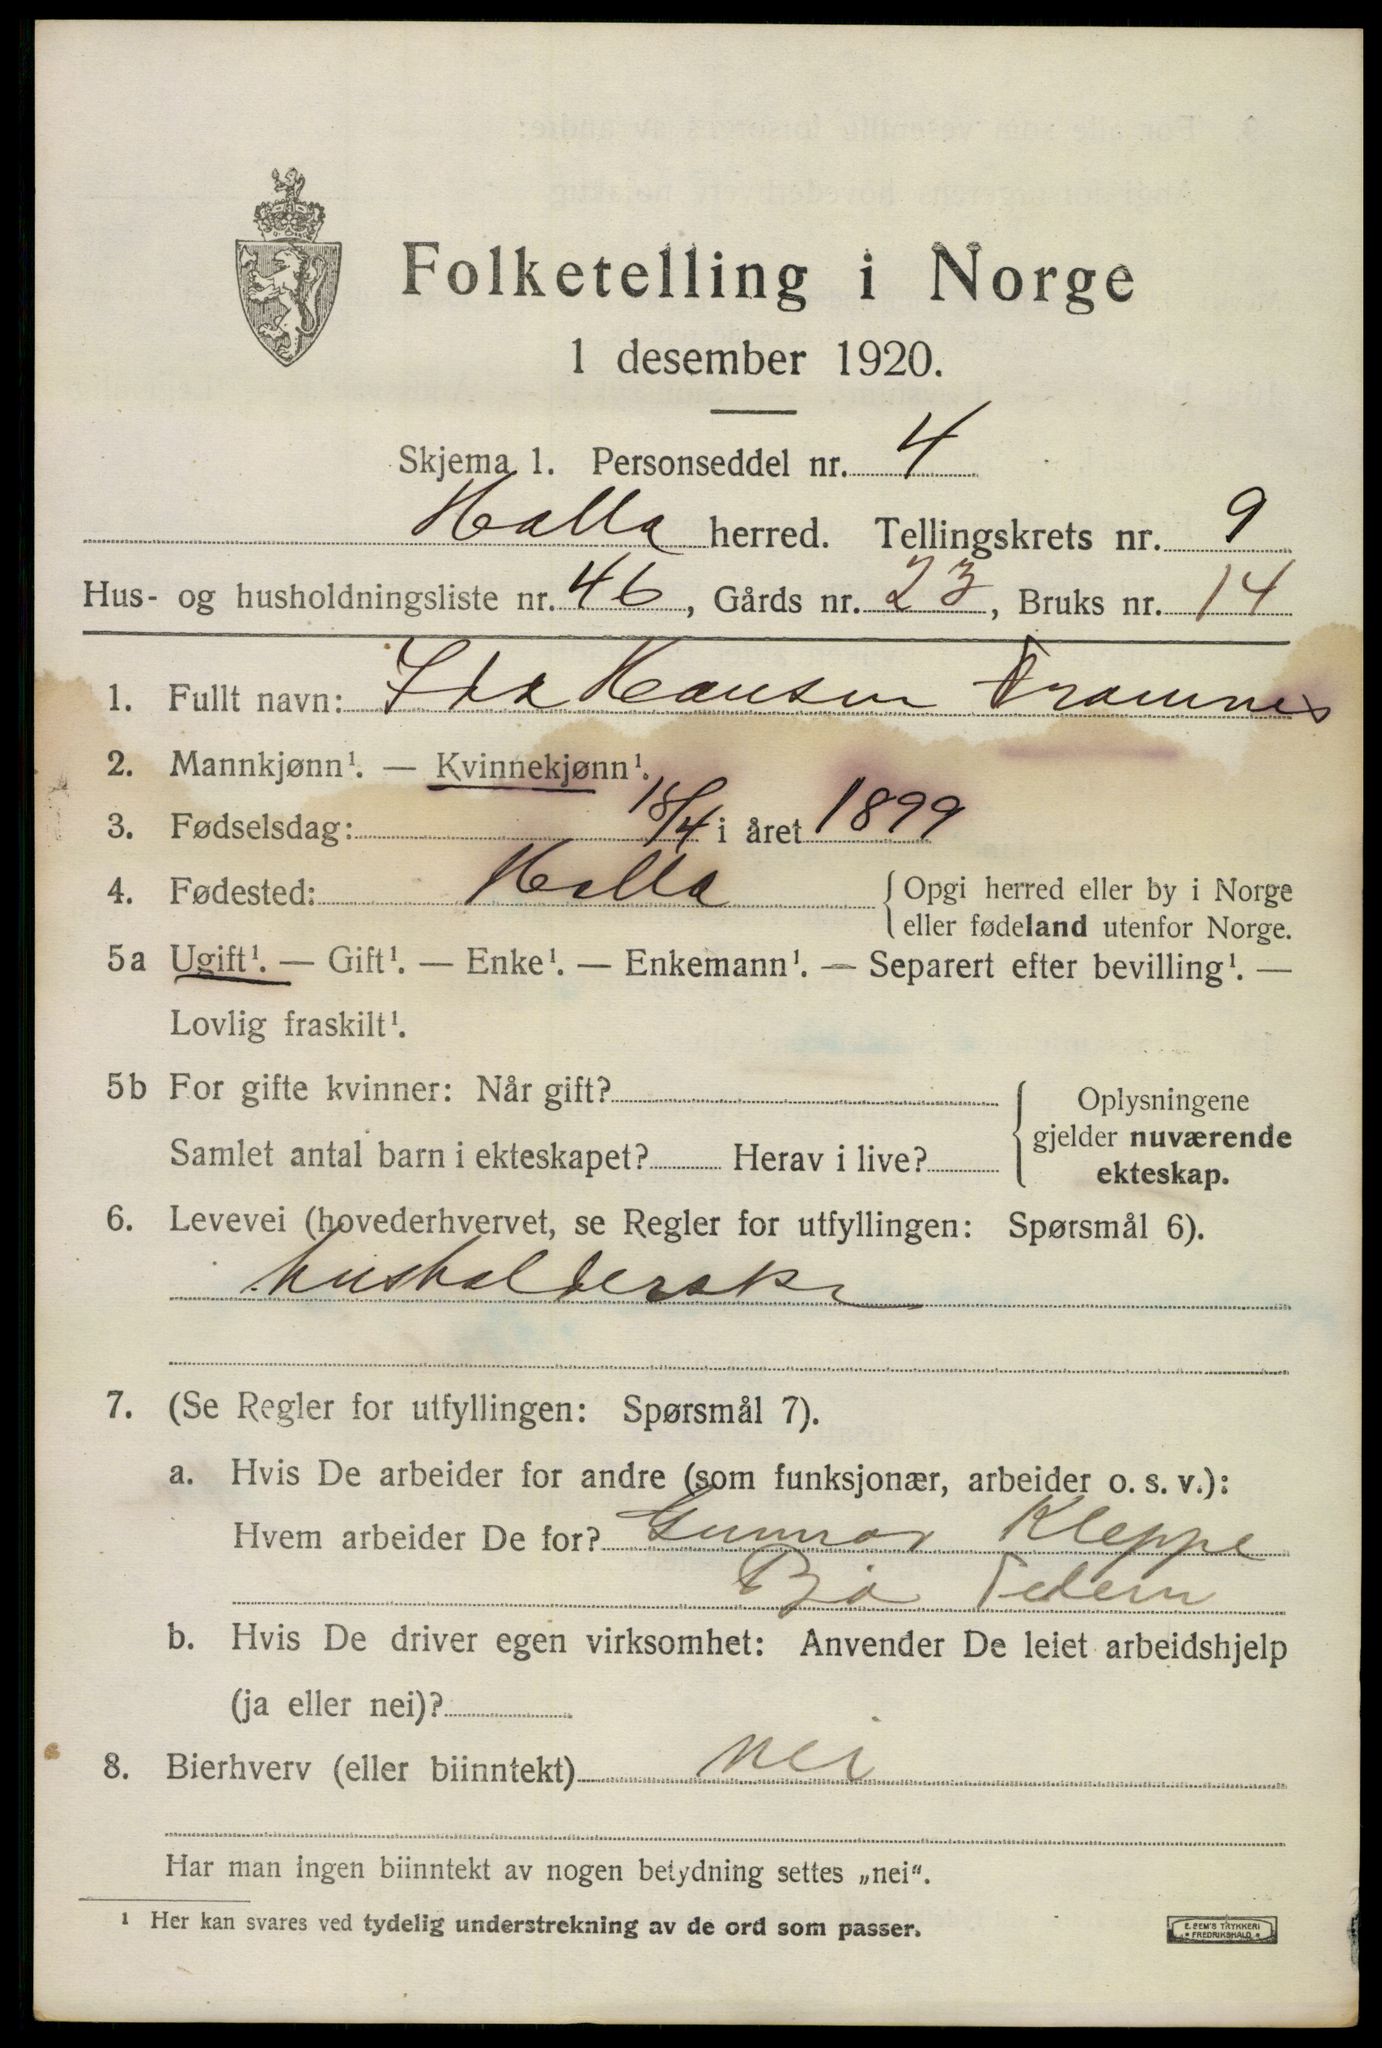 Folketelling i Norge
1 desember 1920.
Skjema 1. Personseddel nr. 4
Holla herred. Tellingskrets nr. 9
Hus- og husholdningsliste nr. 46, Gårds nr. 23, Bruks nr. 14
1. Fullt navn: Ida Hansen Tramnes
2. Mannkjønn¹. — Kvinnekjønn¹.
3. Fødselsdag: 18/4 i året 1899
4. Fødested: Holla { Opgi herred eller by i Norge
eller fødeland utenfor Norge.
5a Ugift¹. — Gift¹. — Enke¹. — Enkemann¹. — Separert efter bevilling¹. —
Lovlig fraskilt¹.
5b For gifte kvinner: Når gift?
Samlet antal barn i ekteskapet? Herav i live?
Oplysningene
gjelder nuværende
ekteskap.
6. Levevei (hovederhvervet, se Regler for utfyllingen: Spørsmål 6).
husholderske
7. (Se Regler for utfyllingen: Spørsmål 7).
a. Hvis De arbeider for andre (som funksjonær, arbeider o. s. v.):
Hvem arbeider De for? Gunnar Kleppe
Bø
b. Hvis De driver egen virksomhet: Anvender De leiet arbeidshjelp
(ja eller nei)?
8. Bierhverv (eller biinntekt) nei
Har man ingen biinntekt av nogen betydning settes „nei“.
¹ Her kan svares ved tydelig understrekning av de ord som passer.
E. SEM'S TRYKKERI
FREDRIKSHALD